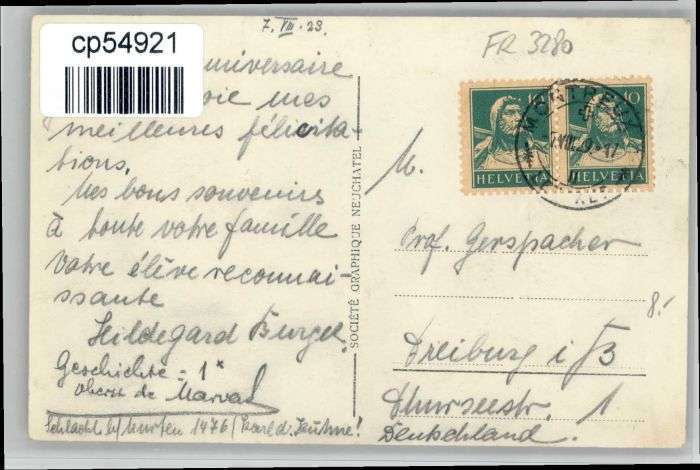 cp54921
7. VIII. 23
FR 3280
niversaire
oie mes
meilleures félicita
tions,
Mes bons souvenirs
à toute votre famille
Votre élève reconnai-
ssante
Hildegard Burgel
Geschichte = 1*
Oberst de Marval
Schlacht b/ Murten 1476 / Karl d. Kühne!
SOCIÉTÉ GRAPHIQUE NEUCHATEL
10 10
HELVETIA HELVETIA
MONTREUX
M.
Prof. Gerspacher
8.-
Freiburg i/B
Thurseestr. 1
Deutschland.